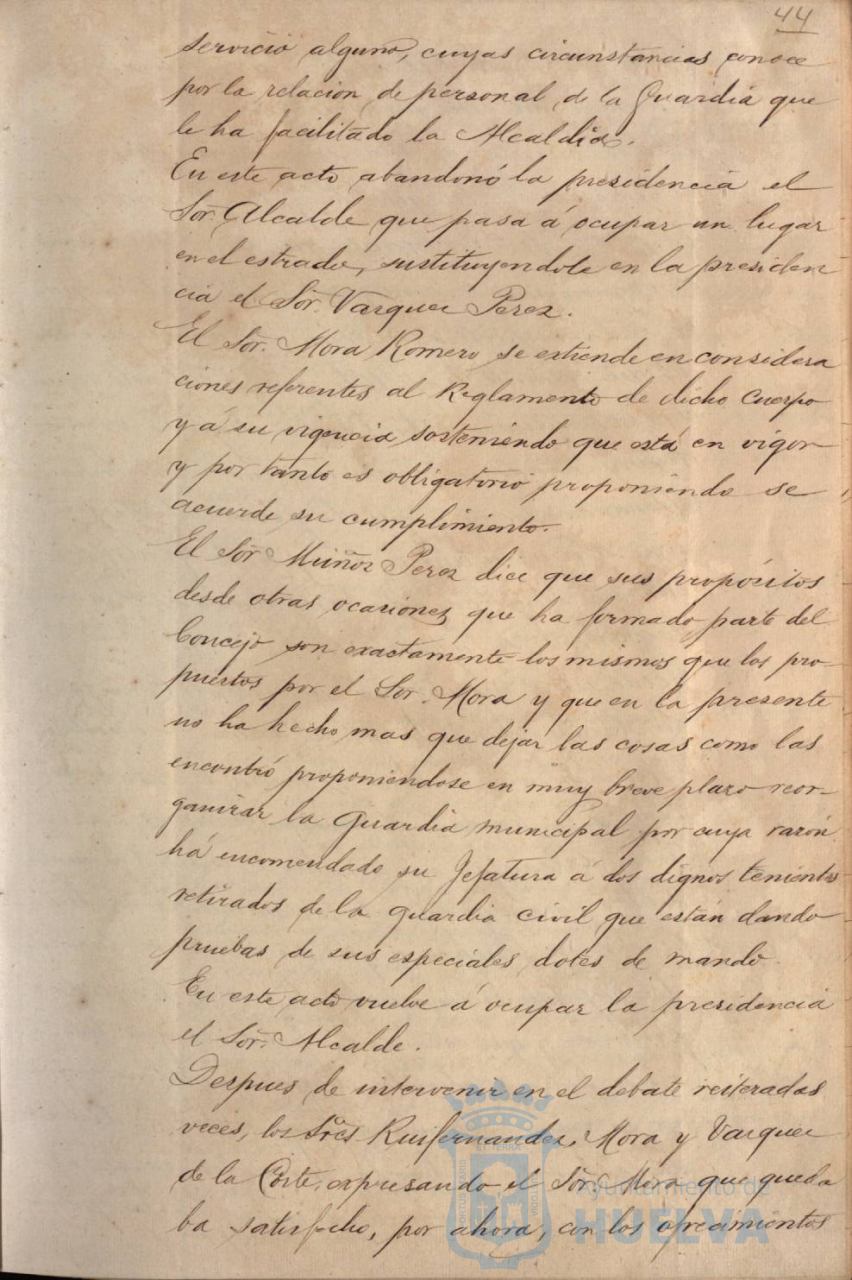 44
servicio alguno, cuyas circunstancias conoce
por la relacion de personal de la Guardia que
le ha facilitado la Alcaldia.
En este acto abandonó la presidencia el
Sor. Alcalde que pasa á ocupar un lugar
en el estrado, sustituyendole en la presiden
cia el Sor. Vazquez Perez.
El Sor. Mora Romero se estiende en considera
ciones referentes al Reglamento de dicho Cuerpo
y á su vigencia sosteniendo que está en vigor
y por tanto es obligatorio proponiendo se
acuerde su cumplimiento.
El Sor Muñoz Perez dice que sus propósitos
desde otras ocasiones que ha formado parte del
Concejo son exactamente los mismos que los pro-
puestos por el Sor. Mora y que en la presente
no ha hecho mas que dejar las cosas como las
encontró proponiendose en muy breve plazo reor-
ganizar la Guardia municipal por cuya razón
há encomendado su Jefatura á dos dignos tenientes
retirados de la guardia civil que están dando
pruebas de sus especiales dotes de mando.
En este acto vuelve á ocupar la presidencia
el Sor. Alcalde.
Despues de intervenir en el debate reiteradas
veces, los Sres Ruifernandez, Mora y Vazquez
de la Corte, expresando el Sor. Mora que queda
ba satisfecho, por ahora, con los ofrecimientos
Ayuntamiento de
HUELVA